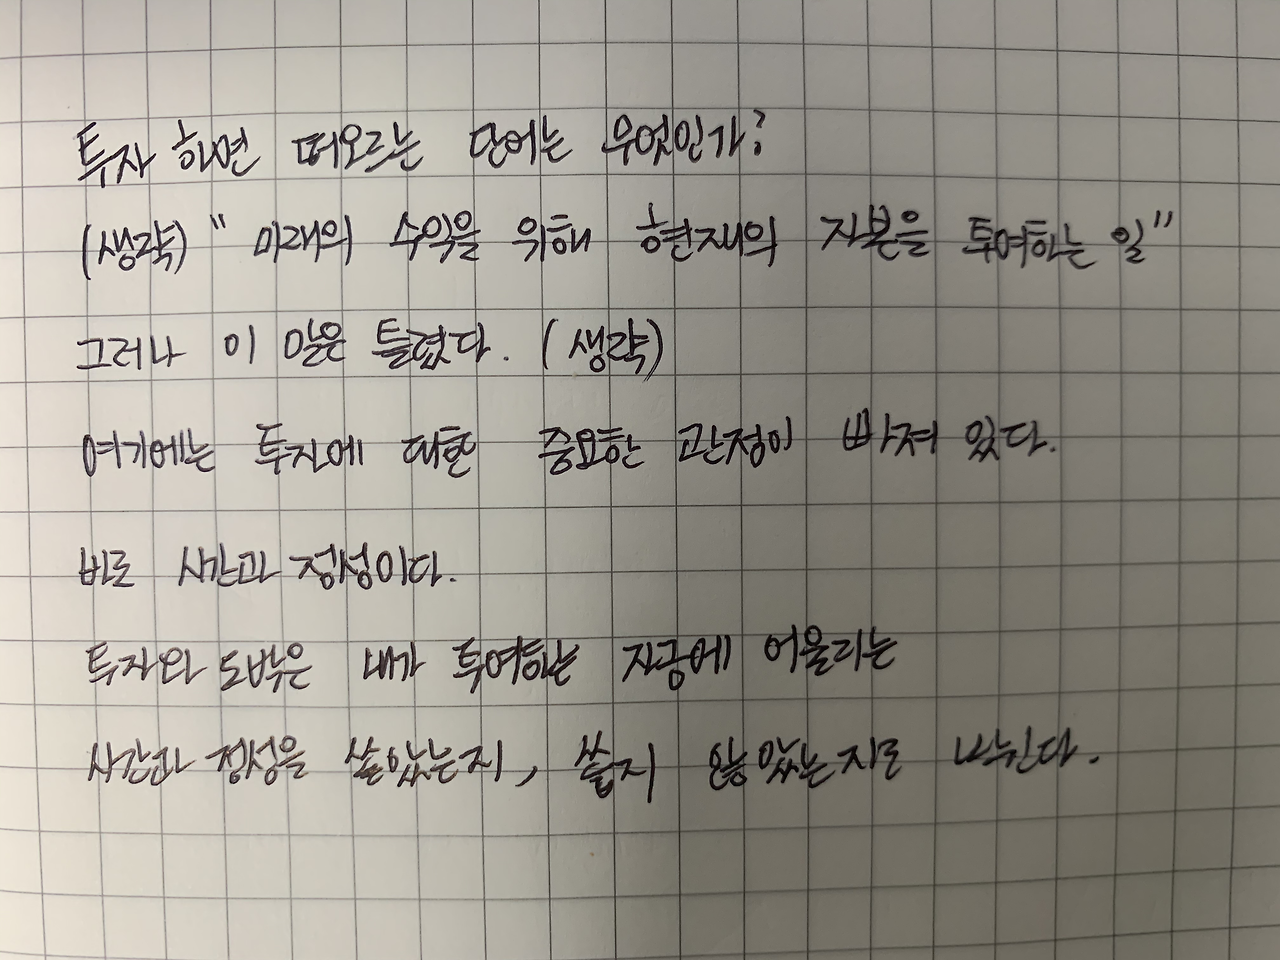 투자 하면 떠오르는 단어는 무엇인가?
(생략) " 미래의 수익을 위해 현재의 자본을 투여하는 일"
그러나 이 말은 틀렸다. (생략)
여기에는 투자에 대한 중요한 관점이 빠져 있다.
바로 시간과 정성이다.
투자와 도박은 내가 투여하는 자금에 어울리는
시간과 정성을 쏟았는지, 쏟지 않았는지로 나뉜다.